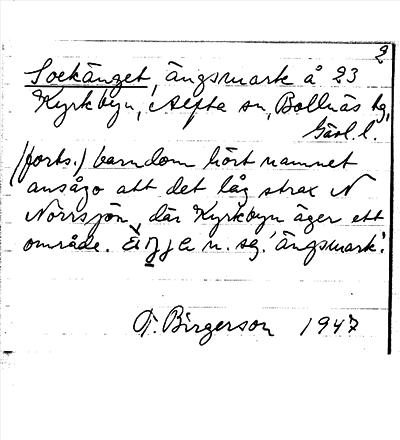 2
Sockänget, ängsmark å 23
Kyrkbyn, Alfta sn, Bollnäs tg,
Gävl. l.
(forts.) barndom hört namnet
ansågo att det låg strax N
Norrsjön, där Kyrkbyn äger ett
område. äŋja n. sg. 'ängsmark'.
T. Birgerson 1947